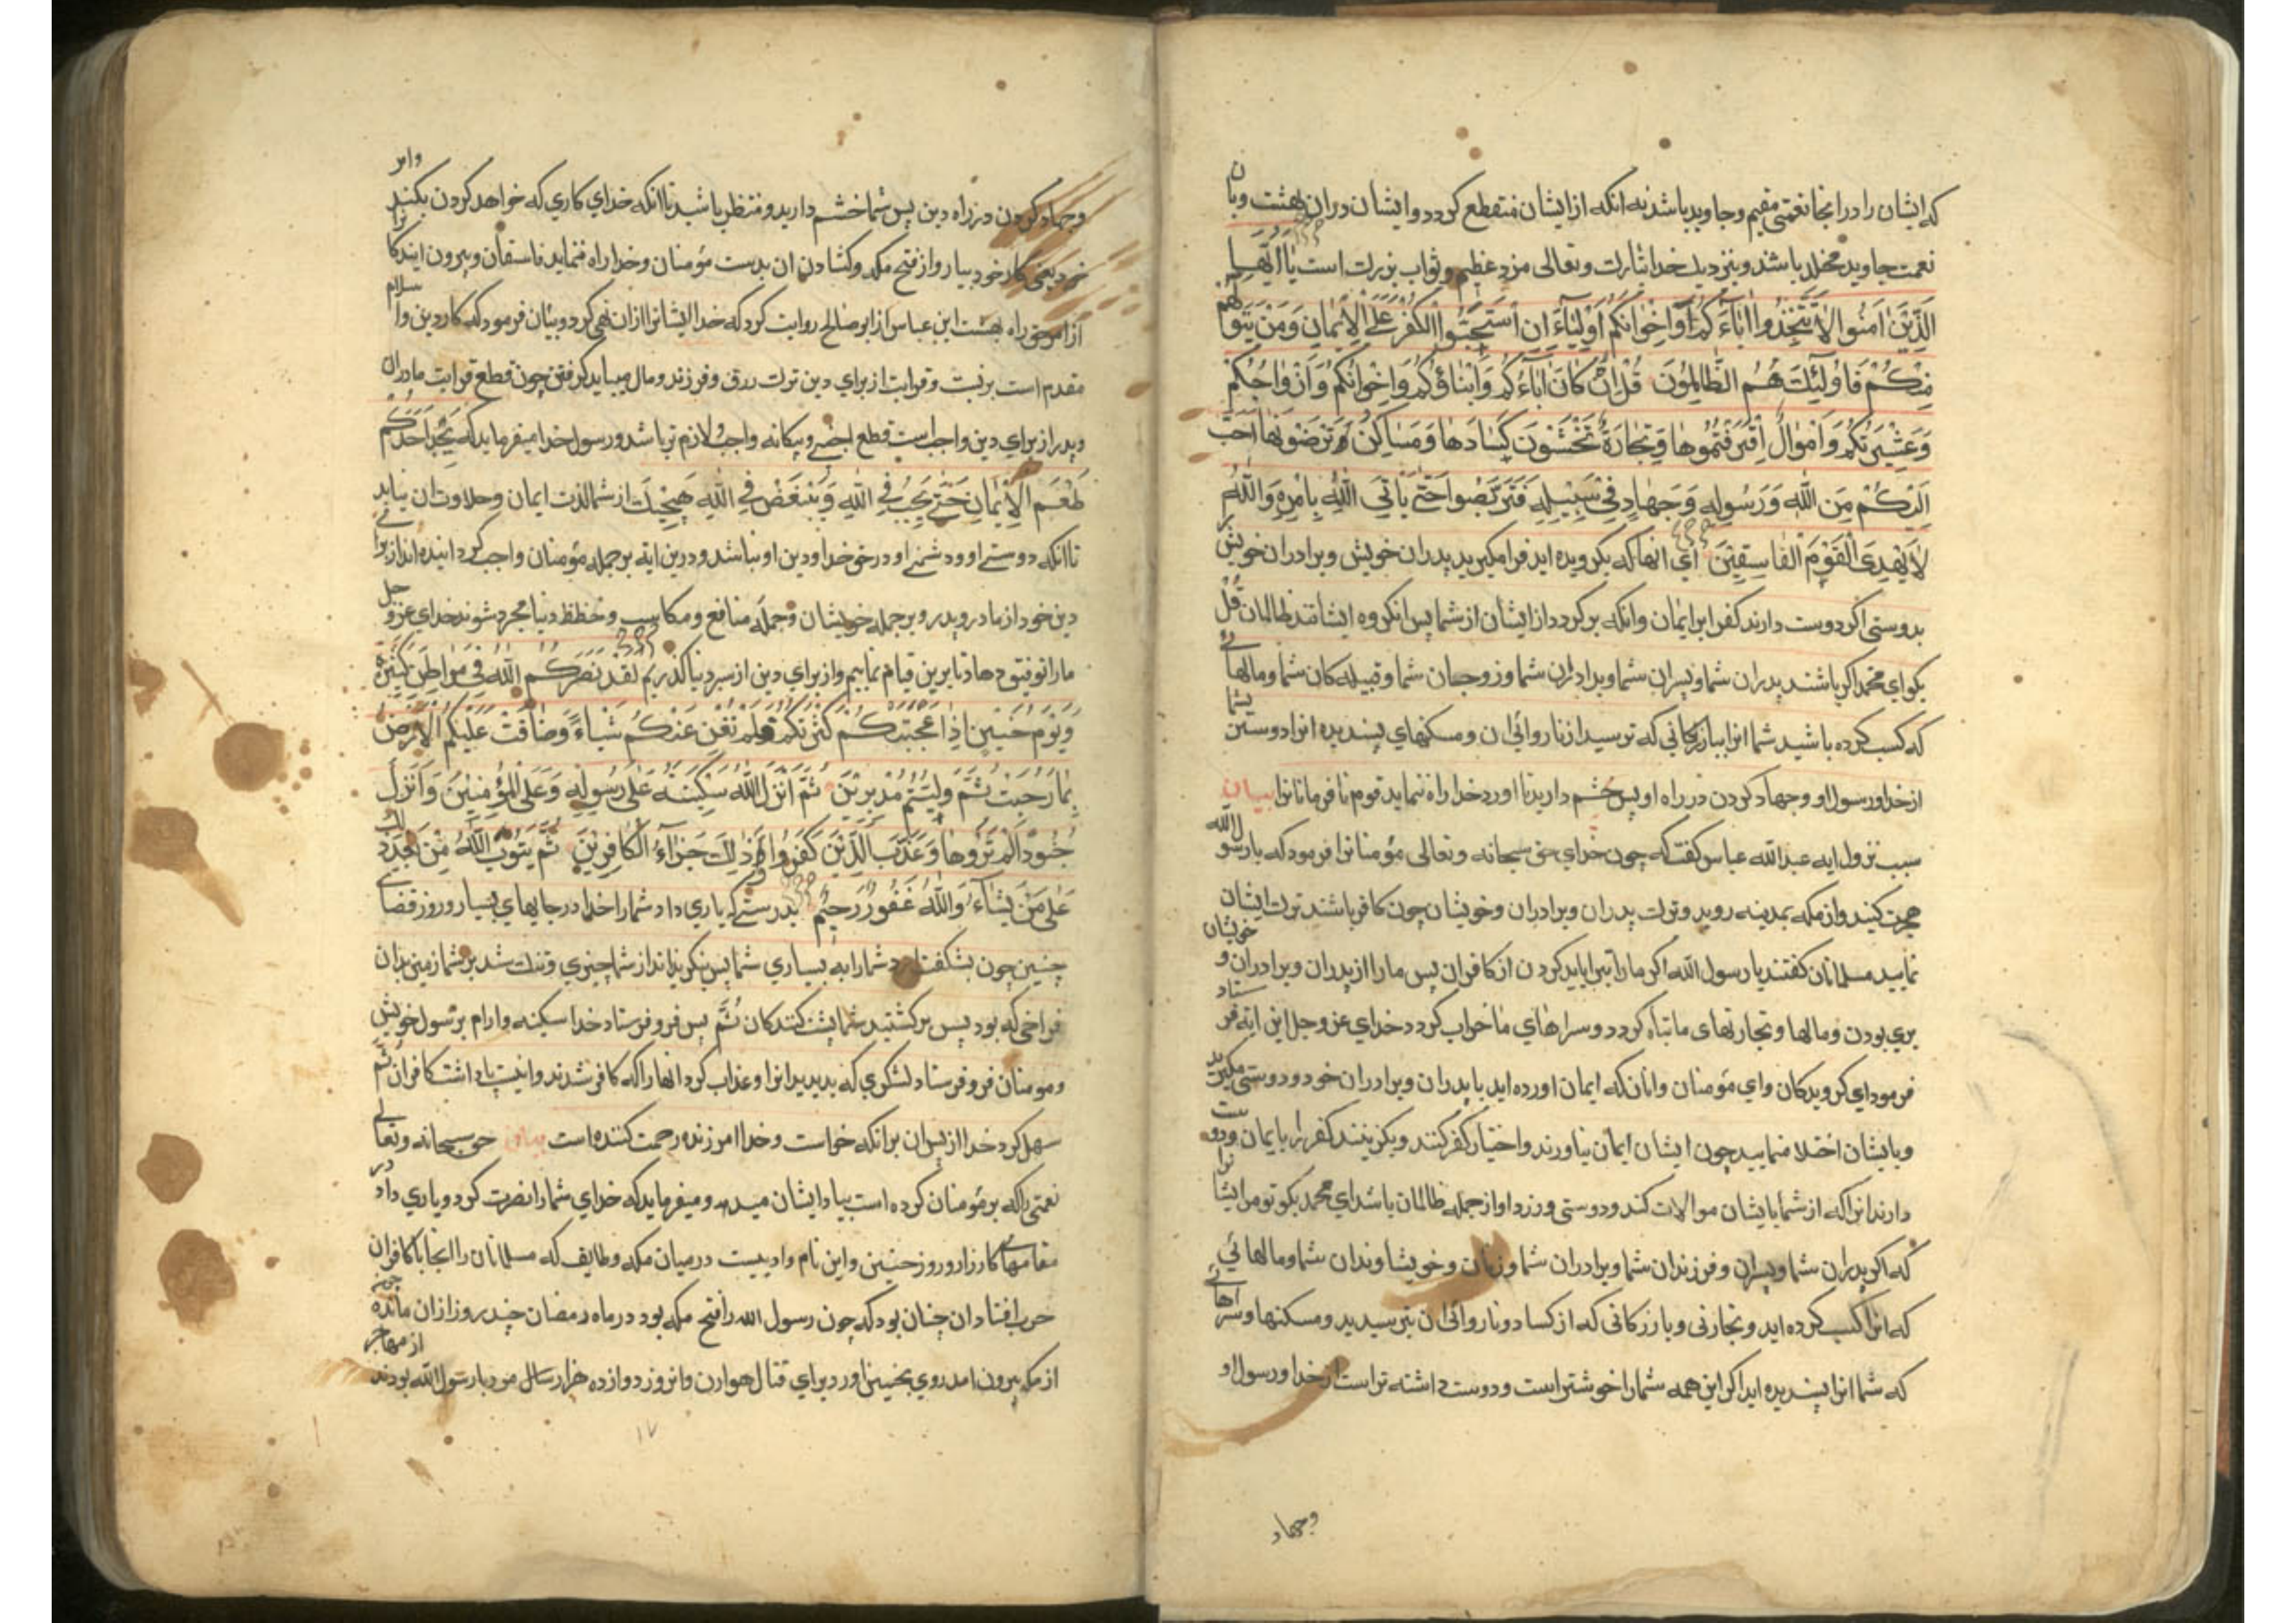 که ایشان را در انجا نعمتی مقیم و جاوید باشد نه انکه از ایشان منقطع کردد و ایشان در ان بهشت و بان
نعمت جاوید مخلد باشند و بنزدیك خدا تبارك و تعالی مزد عظیم و ثواب بزرك است یَا اَیُّهَا
الَّذِیْنَ اٰمَنُوا لَا تَتَّخِذُوا اٰبَاءَكُمْ وَاِخْوَانَكُمْ اَوْلِیَاءَ اِنِ اسْتَحَبُّوا الْكُفْرَ عَلَی الْاِیْمَانِ وَمَنْ یَتَوَلَّهُمْ
مِنْكُمْ فَاُولٰئِكَ هُمُ الظَّالِمُوْنَ قُلْ اِنْ كَانَ اٰبَاءُكُمْ وَاَبْنَاؤُكُمْ وَاِخْوَانُكُمْ وَاَزْوَاجُكُمْ
وَعَشِیْرَتُكُمْ وَاَمْوَالٌ اقْتَرَفْتُمُوْهَا وَتِجَارَةٌ تَخْشَوْنَ كَسَادَهَا وَمَسَاكِنُ تَرْضَوْنَهَا اَحَبَّ
اِلَیْكُمْ مِنَ اللّٰهِ وَرَسُوْلِهِ وَجِهَادٍ فِیْ سَبِیْلِهِ فَتَرَبَّصُوا حَتّٰی یَاْتِیَ اللّٰهُ بِاَمْرِهِ وَاللّٰهُ
لَا یَهْدِی الْقَوْمَ الْفَاسِقِیْنَ ای انها که بکرویده اید فرا مکیرید پدران خویش و برادران خویش
بدوستی اکر دوست دارند کفر بر ایمان و انکه برکردد از ایشان از شما پس انکروه ایشانند ظالمان قُلْ
بکو ای محمد اکر باشند پدران شما و پسران شما و برادران شما و زوجهان شما و قبیله کان شما و مالهائے
که کسب کرده باشید شما انرا و بازرکانی که ترسید از ناروائی ان و مسکنهای پسندیده انرا دوستر بشما
از خدا و رسول او و جهاد کردن در راه او پس چشم دارید تا اورد خدا راه ننماید قوم نافرمانانرا بیان
سبب نزول ایه عبدالله عباس کفت که چون خدای حق سبحانه و تعالی مؤمنانرا فرمود که با رسول الله
هجرت کنید و از مکه بمدینه روید و ترك پدران و برادران و خویشان چون کافر باشند ترك ایشان
نمایید مسلمانان کفتند یا رسول الله اکر ما را تبرا باید کردن از کافران پس ما را از پدران و برادران و خویشان
بری بودن و مالها و تجارتهای ما تباه کردد و سراهای ما خراب کردد خدای عز و جل این ایه فرستاد
فرمود ای کرویدکان و ای مؤمنان و انان که ایمان اورده اید با پدران و برادران خود دوستی مکیرید
و با ایشان اختلا منمایید چون ایشان ایمان نیاورند و اختیار کفر کنند و بکزینند کفر را بر ایمان و دوست
دارند انرا که از شما با ایشان موالات کند و دوستی ورزد او از جمله ظالمان باشد ای محمد بکو تو مر ایشانرا
که اکر پدران شما و پسران و فرزندان شما و برادران شما و زنان و خویشاوندان شما و مالهائی
که انرا کسب کرده اید و تجارتی و بازرکانی که از کساد و ناروائی ان بترسیدید و مسکنها و سراهائے
که شما انرا پسندیده اید اکر این همه شما را خوشتر است و دوست داشته تر است از خدا و رسول او
وجهاد
و جهاد کردن در راه دین پس شما خشم دارید و منتظر باشید تا انکه خدای کاری که خواهد کردن بکند وامر
خود یعنی کار خود بیارد از فتح مکه و کشادن ان بدست مؤمنان و خدا راه ننماید فاسقان و بیرون ایندکانرا
از امر حق راه بهشت ابن عباس از ابو صالح روایت کرد که خدا ایشانرا ازان نهی کرد و بیان فرمود که کار دین و اسلام
مقدم است بر نسبت و قرابت از برای دین ترك زن و فرزند و مال میباید کرفتن چون قطع قرابت مادران
و پدر از برای دین واجب است قطع اجنبی و بیکانه واجب و لازم تر باشد و رسول خدا میفرماید که یَجِدُ اَحَدُكُمْ
طَعْمَ الْاِیْمَانِ حَتّٰی یُحِبَّ فِی اللّٰهِ وَیُبْغِضَ فِی اللّٰهِ هیچ یك از شما لذت ایمان و حلاوت ان نیابد
تا انکه دوستی او و دشمنی او در حق خدا و دین او نباشد و درین ایه بر جمله مؤمنان واجب کردانیده اند از برائے
دین خود از مادر و پدر و بر جمله خویشان و جمله منافع و مکاسب و حظظ دنیا مجرد شوند خدای عز و جل
ما را توفیق دهاد تا برین قیام نماییم و از برای دین از سر دنیا کذریم لَقَدْ نَصَرَكُمُ اللّٰهُ فِیْ مَوَاطِنَ كَثِیْرَةٍ
وَیَوْمَ حُنَیْنٍ اِذْ اَعْجَبَتْكُمْ كَثْرَتُكُمْ فَلَمْ تُغْنِ عَنْكُمْ شَیْئًا وَضَاقَتْ عَلَیْكُمُ الْاَرْضُ
بِمَا رَحُبَتْ ثُمَّ وَلَّیْتُمْ مُدْبِرِیْنَ ثُمَّ اَنْزَلَ اللّٰهُ سَكِیْنَتَهُ عَلٰی رَسُوْلِهِ وَعَلَی الْمُؤْمِنِیْنَ وَاَنْزَلَ
جُنُوْدًا لَمْ تَرَوْهَا وَعَذَّبَ الَّذِیْنَ كَفَرُوا وَذٰلِكَ جَزَاءُ الْكَافِرِیْنَ ثُمَّ یَتُوْبُ اللّٰهُ مِنْ بَعْدِ ذٰلِكَ
عَلٰی مَنْ یَشَاءُ وَاللّٰهُ غَفُوْرٌ رَحِیْمٌ بدرستی که یاری داد شما را خدا در جایهای بسیار و روز قضائے
چنین چون بشکفت اورد شما را به بسیاری شما پس نکردانید از شما چیزی و تنك شد بر شما زمین بدان
فراخی که بود پس برکشتید شما پشت کنندکان ثُمَّ پس فرو فرستاد خدا سکینه و ارام بر رسول خویش
و مومنان فرو فرستاد لشکری که ندیدید انرا و عذاب کرد انها را که کافر شدند و اینست پاداشت کافران ثُمَّ
سهل کرد خدا از پس ان بر انکه خواست و خدا امرزنده رحمت کننده است بیان حق سبحانه و تعالے
نعمتی را که بر مؤمنان کرده است بیاد ایشان میدهد و میفرماید که خدای شما را نصرت کرد و یاری داد در
مقامهائے کارزار و روز حنین و این نام وادییست در میان مکه و طایف که مسلمانان را انجا با کافران
حرب افتاد ان چنان بود که چون رسول الله را فتح مکه بود در ماه رمضان چند روز ازان مانده چون
از مکه بیرون امد روی بحنین اورد برای قتال هوازن و انروز دوازده هزار سال مرد با رسول الله بودند از مهاجر
١٧